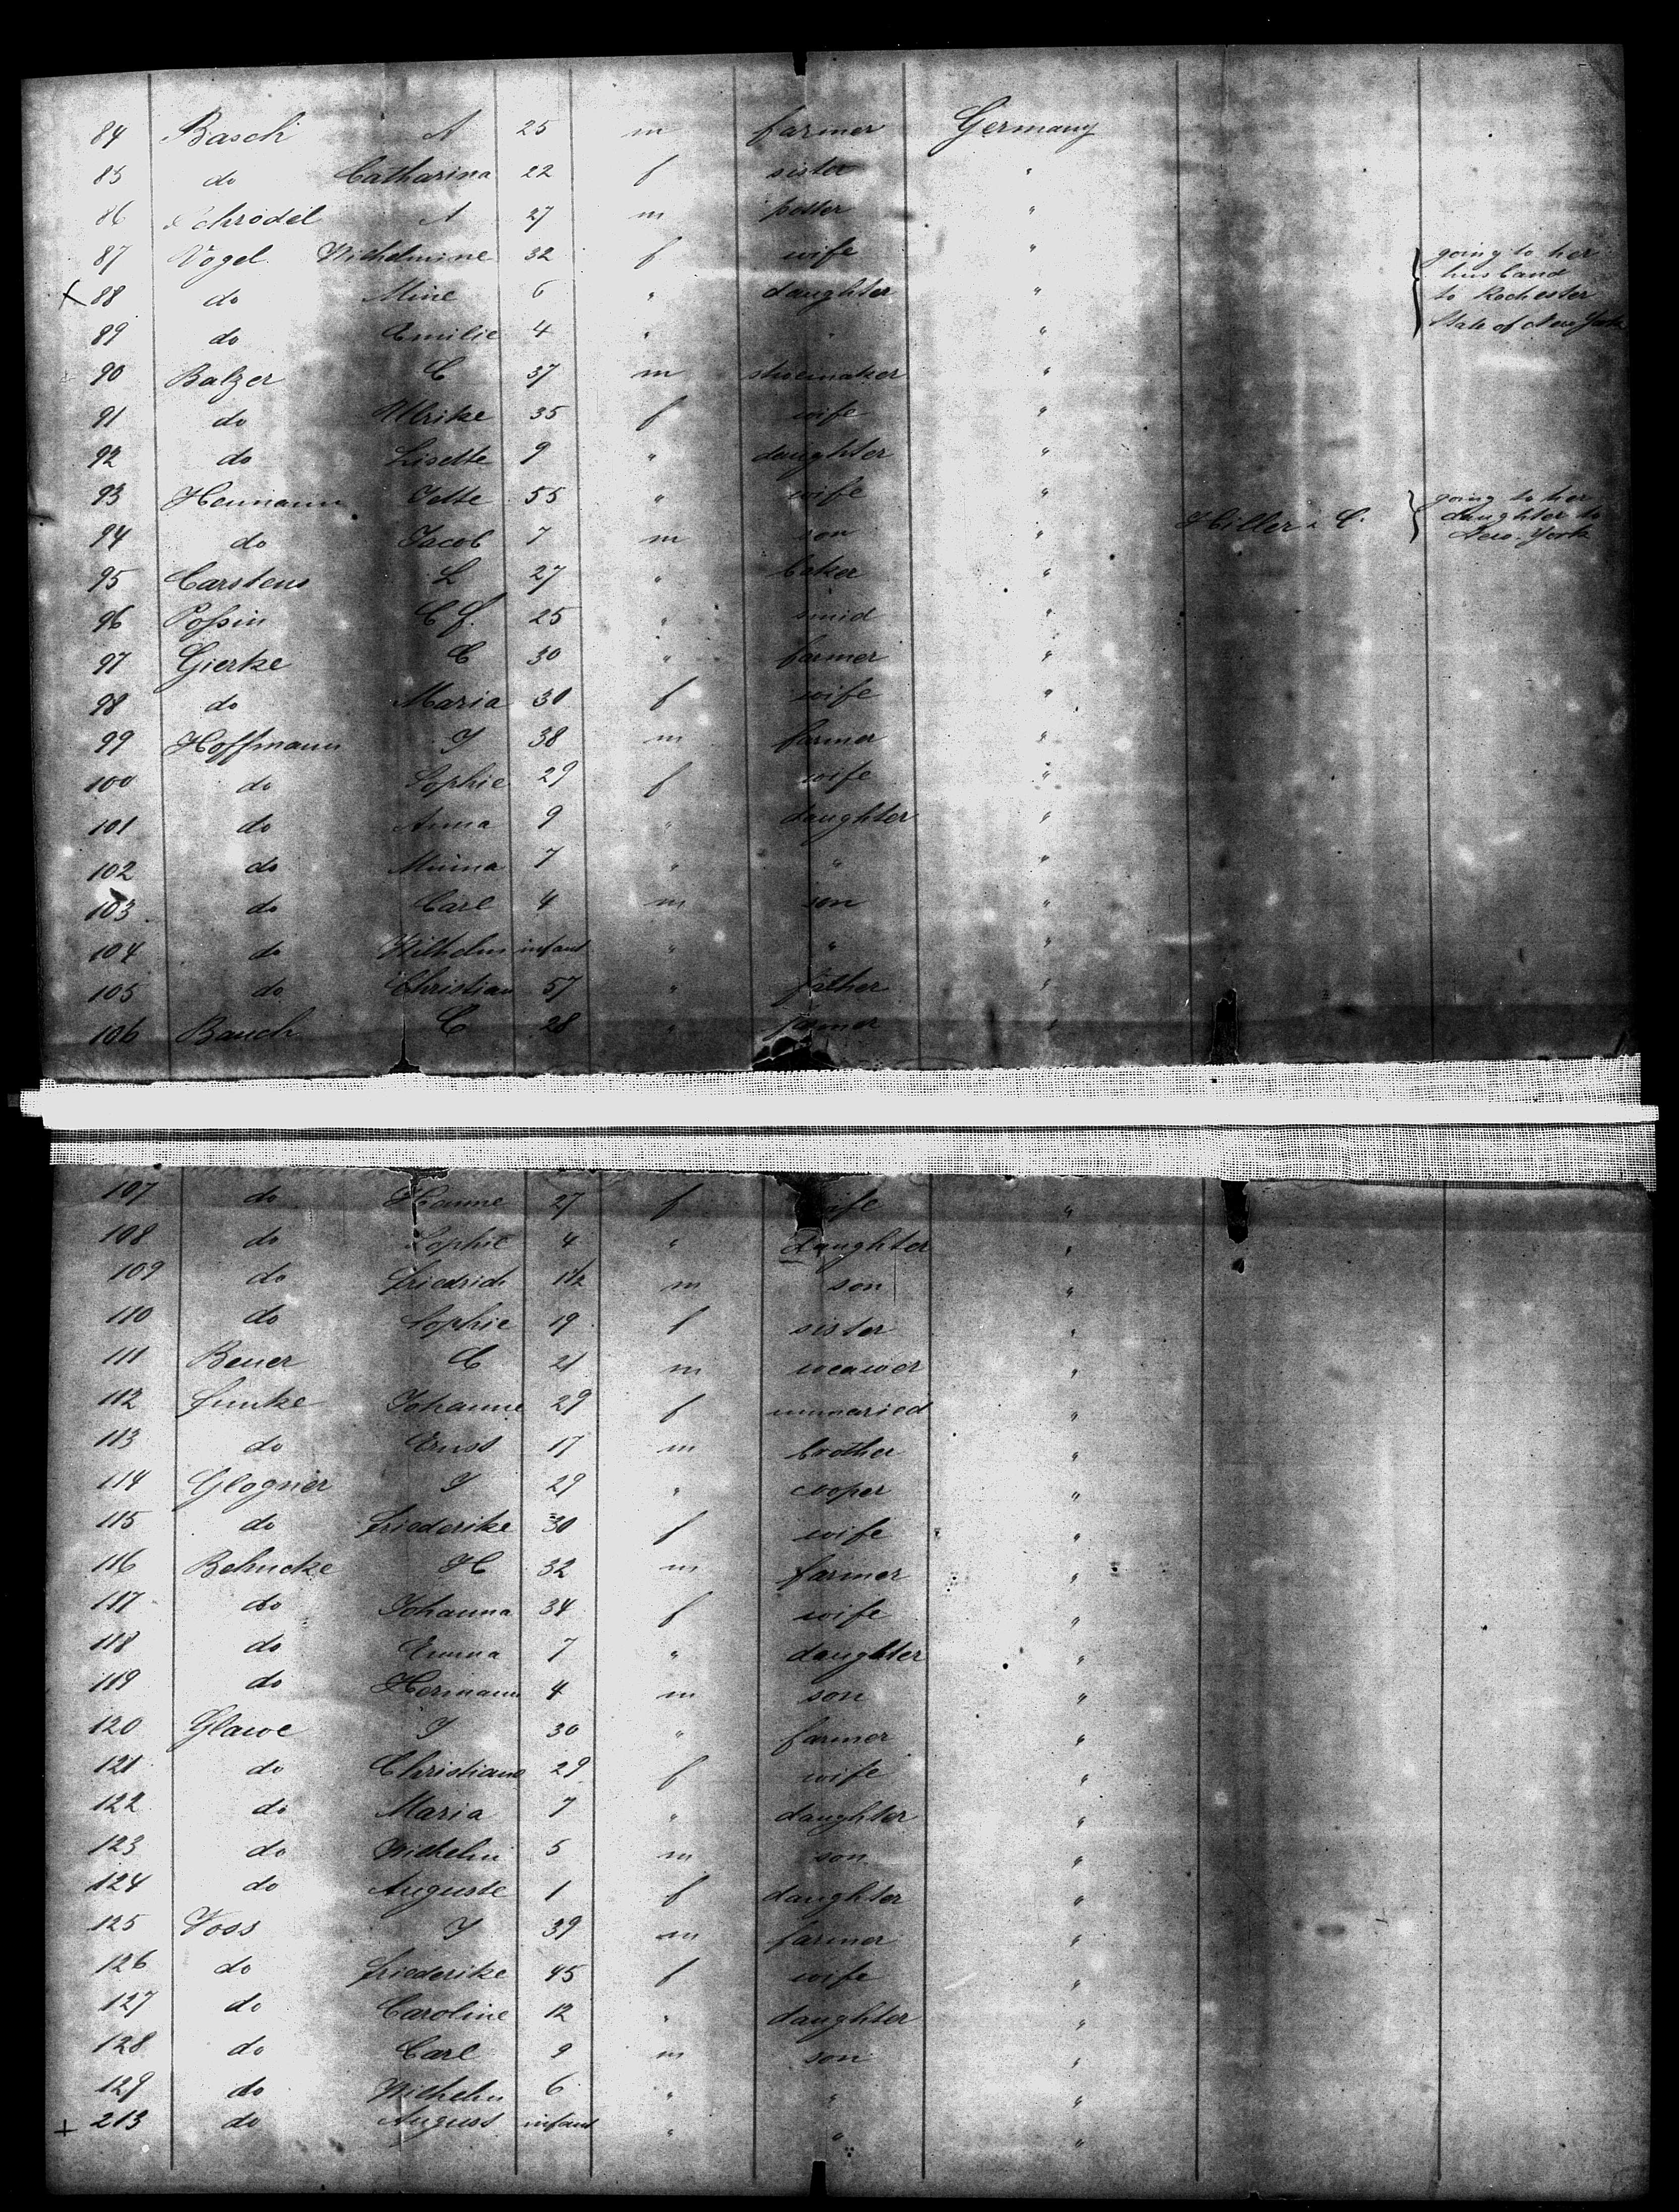 84 Basch A 25 m farmer Germany
85 do Catharina 22 f sister "
86 Schrödel A 27 m potter "
87 Vogel Wilhelmine 32 f wife " going to her
husband
88 do Mine 6 " daughter " to Rochester
89 do Emilie 4 " " " State of New York
90 Balzer C 37 m shoemaker "
91 do Ulrike 35 f wife "
92 do Lisette 9 " daughter "
93 Heumann Jette 55 " wife " going to her
94 do Jacob 7 m son " Hiller & C. daughter to
New-York
95 Carstens L 27 " baker "
96 Poſsin C f. 25 " smid "
97 Gierke C 30 " farmer "
98 do Maria 30 f wife "
99 Hoffmann J 38 m farmer "
100 do Sophie 29 f wife "
101 do Anna 9 " daughter "
102 do Minna 7 " " "
103 do Carl 4 m son "
104 do Wilhelm infant " " "
105 do Christian 57 " father "
106 Bauch C 28 " farmer "
107 do Hanne 27 f wife "
108 do Sophie 4 " daughter "
109 do Friedrich 1 1/2 m son "
110 do Sophie 19 f sister "
111 Beuer C 21 m weawer "
112 Funke Johanne 29 f unmaried "
113 do Ernst 17 m brother "
114 Glogner J 29 " cooper "
115 do Friederike 30 f wife "
116 Behncke H 32 m farmer "
117 do Johanna 34 f wife "
118 do Emma 7 " daughter "
119 do Hermann 4 m son "
120 Glawe J 30 " farmer "
121 do Christiane 29 f wife "
122 do Maria 7 " daughter "
123 do Wilhelm 5 m son "
124 do Auguste 1 f daughter "
125 Voss J 39 m farmer "
126 do Friederike 45 f wife "
127 do Caroline 12 " daughter "
128 do Carl 9 m son "
129 do Wilhelm 6 " " "
+ 213 do August infant " " "